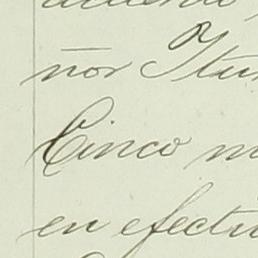 ñor Itur
Cinco m
en efectiv